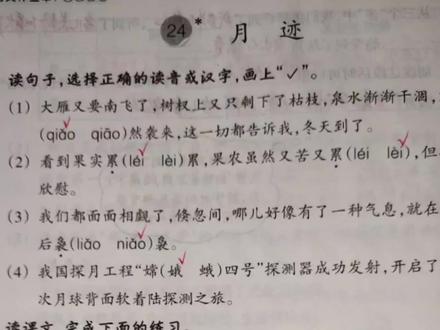 24* 月 迹
读句子,选择正确的读音或汉字,画上“✓”。
(1) 大雁又要南飞了,树杈上又只剩下了枯枝,泉水渐渐干涸,
(qiǎo qiāo)然袭来,这一切都告诉我,冬天到了。
(2) 看到果实累(léi lèi)累,果农虽然又苦又累(léi lèi),但
欣慰。
(3) 我们都面面相觑了,倏忽间,哪儿好像有了一种气息,就在
后袅(liǎo niǎo)袅。
(4) 我国探月工程“嫦(娥 蛾)四号”探测器成功发射,开启了
次月球背面软着陆探测之旅。
读课文,完成下面的练习。